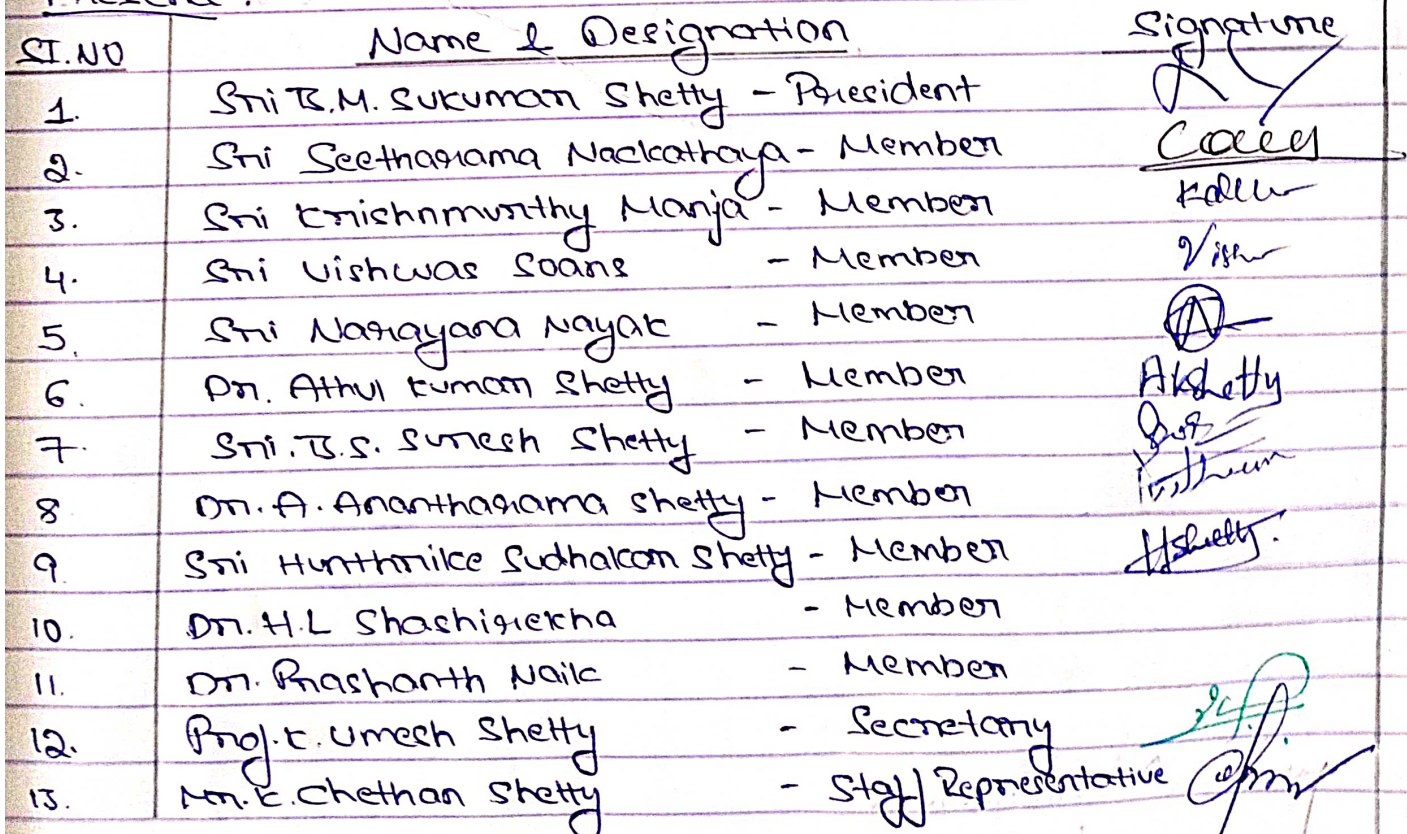 Present :
SI.NO Name & Designation Signature
1. Sri B.M. Sukumar Shetty - President
2. Sri Seetharama Nackathaya - Member
3. Sri Krishnmurthy Manja - Member
4. Sri Vishwas Soans - Member Vishw
5. Sri Narayana Nayak - Member
6. Dr. Athul Kumar Shetty - Member AkShetty
7. Sri. B.S. Suresh Shetty - Member
8 Dr. A. Anantharama Shetty - Member
9. Sri Hunthrike Sudhakar Shetty - Member HShetty.
10. Dr. H.L Shashirekha - Member
11. Dr. Prashanth Naik - Member
12. Prof. K. Umesh Shetty - Secretary
13. Mr. K. Chethan Shetty - Staff Representative